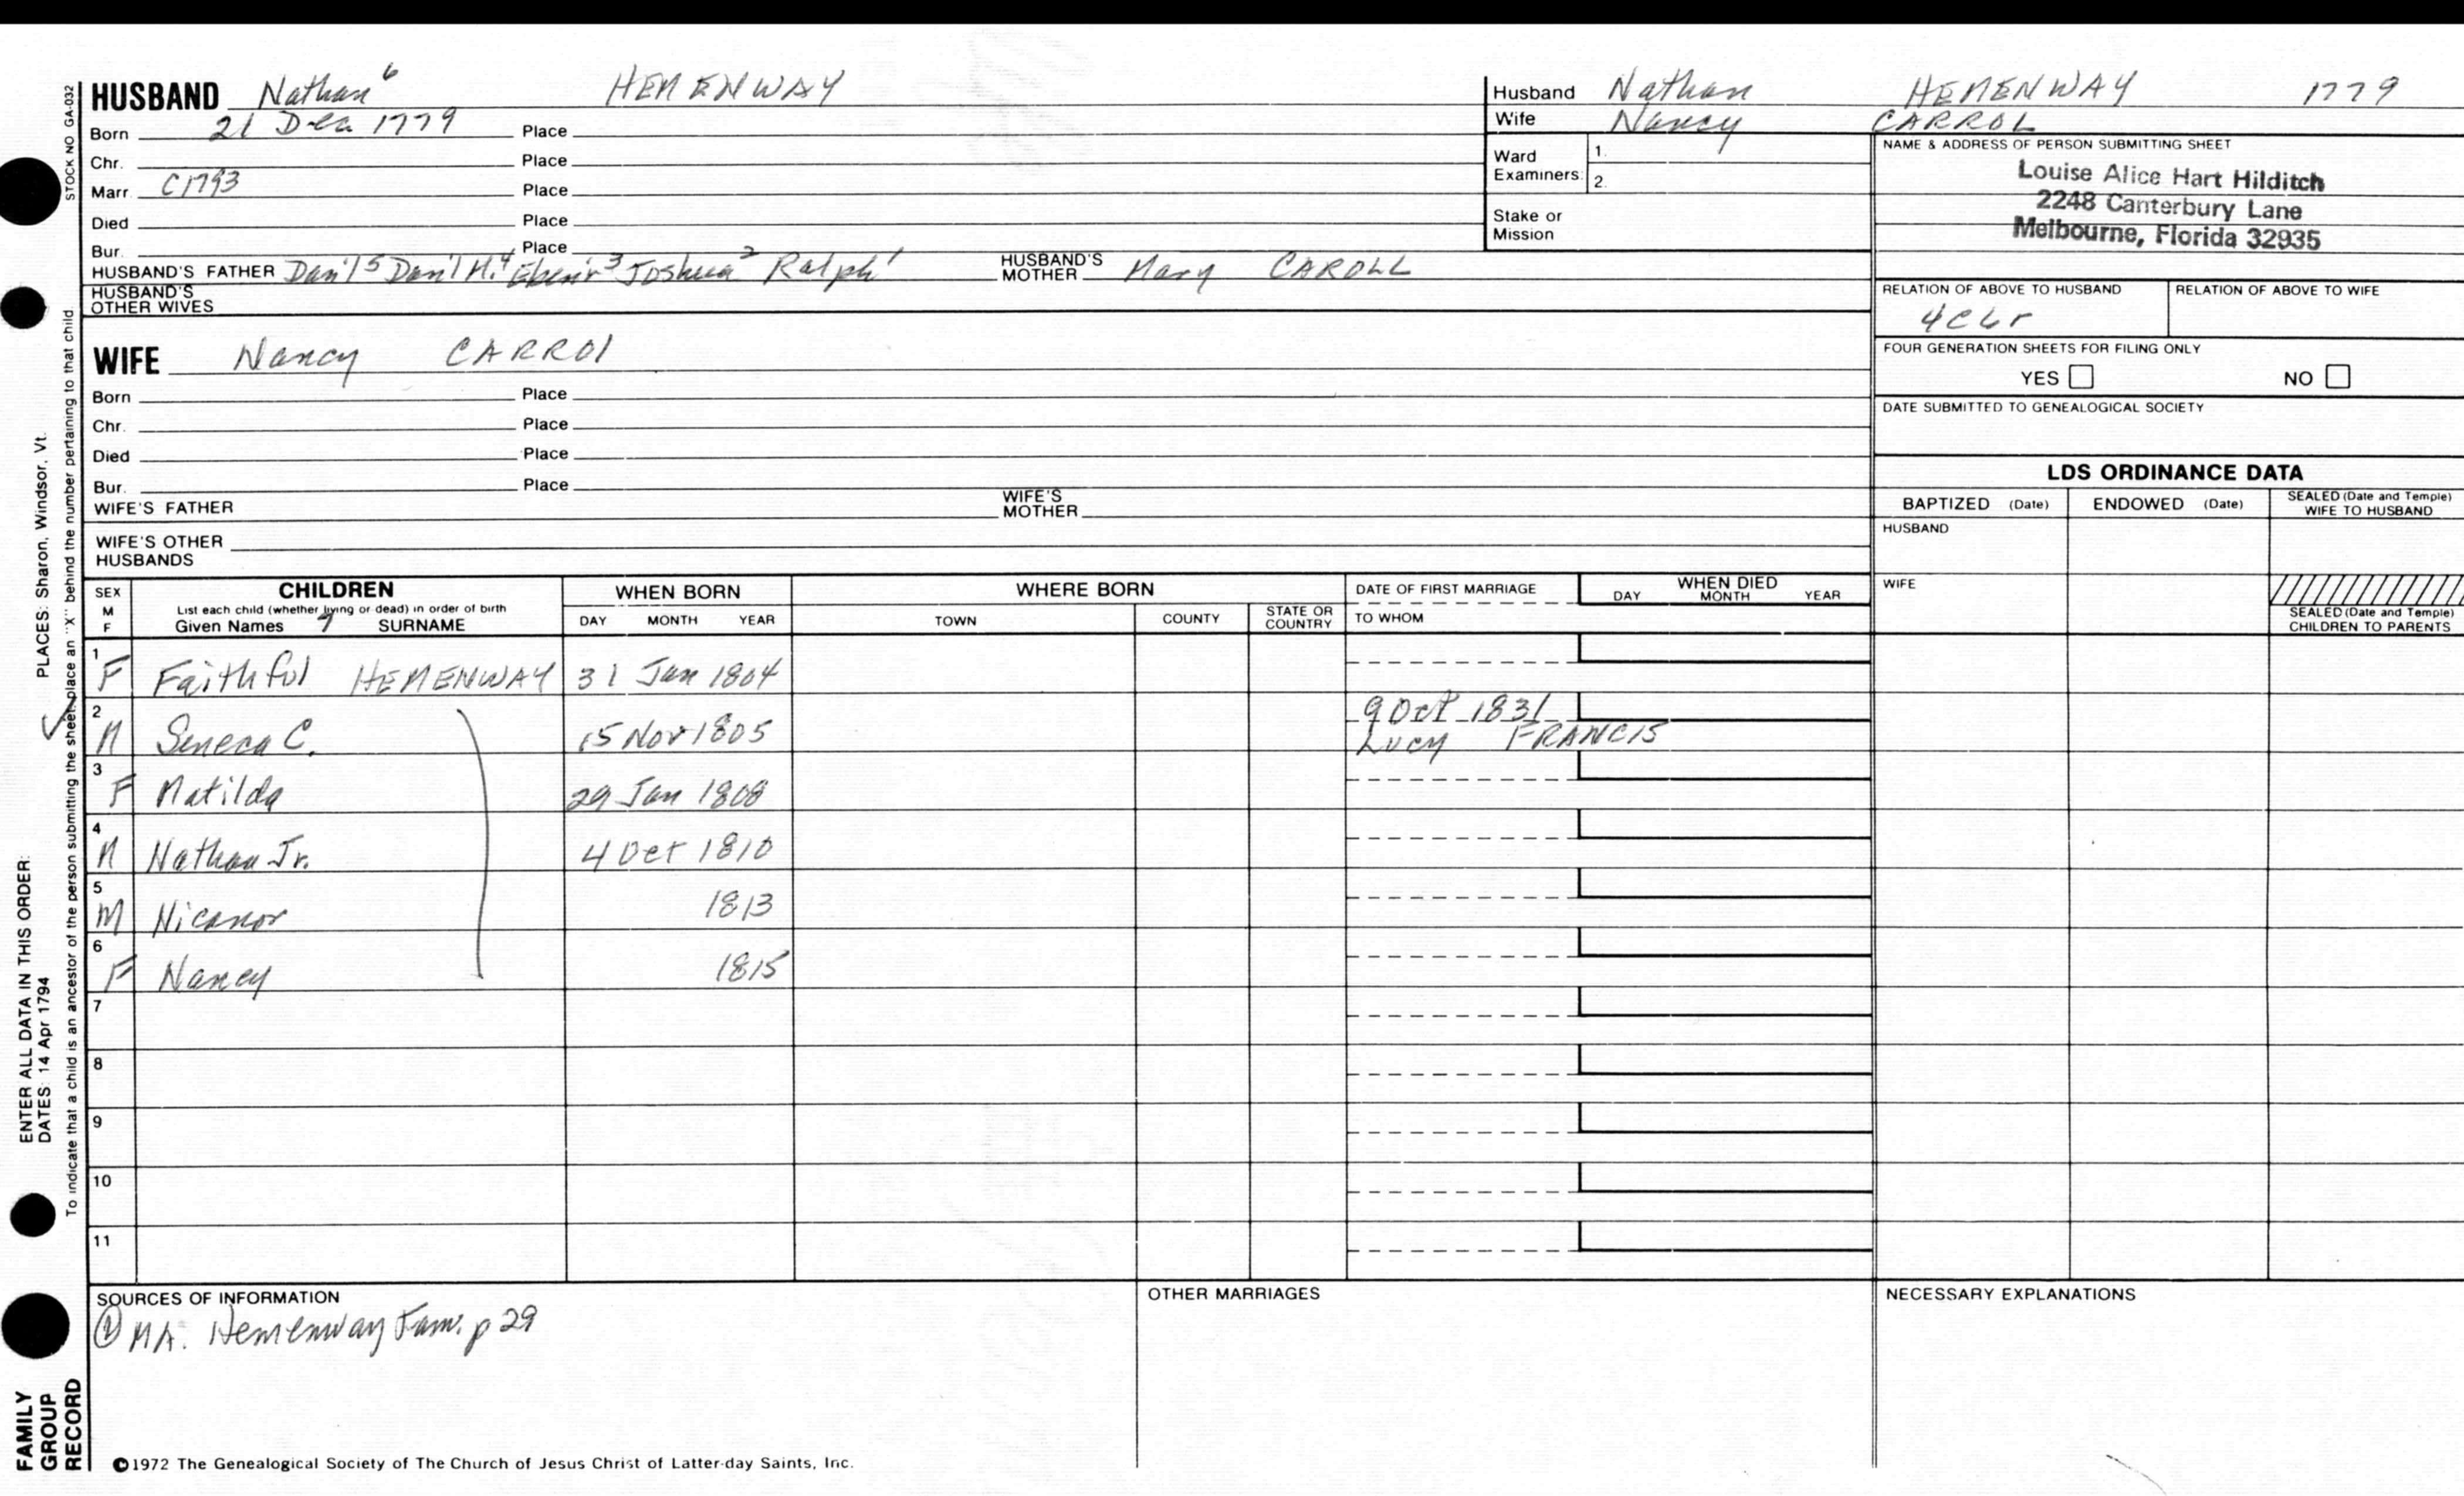 HUSBAND Nathan⁶ HEMENWAY
Born 21 Dec 1779 Place
Chr. Place
Marr. C1793 Place
Died Place
Bur. Place
HUSBAND'S FATHER Dan'l⁵ Dan'l M.⁴ Eben'r³ Joshua² Ralph¹ HUSBAND'S MOTHER Mary CAROLL
HUSBAND'S OTHER WIVES
WIFE Nancy CARROl
Born Place
Chr. Place
Died Place
Bur. Place
WIFE'S FATHER WIFE'S MOTHER
WIFE'S OTHER HUSBANDS
Husband Nathan HEMENWAY 1779
Wife Nancy CARROL
Ward Examiners: 1. 2.
Stake or Mission
NAME & ADDRESS OF PERSON SUBMITTING SHEET
Louise Alice Hart Hilditch
2248 Canterbury Lane
Melbourne, Florida 32935
RELATION OF ABOVE TO HUSBAND RELATION OF ABOVE TO WIFE
4C6r
FOUR GENERATION SHEETS FOR FILING ONLY
YES NO
DATE SUBMITTED TO GENEALOGICAL SOCIETY
LDS ORDINANCE DATA
BAPTIZED (Date) ENDOWED (Date) SEALED (Date and Temple) WIFE TO HUSBAND
HUSBAND
WIFE
SEALED (Date and Temple) CHILDREN TO PARENTS
SEX M F
CHILDREN
List each child (whether living or dead) in order of birth
Given Names SURNAME
WHEN BORN
DAY MONTH YEAR
WHERE BORN
TOWN COUNTY STATE OR COUNTRY
DATE OF FIRST MARRIAGE
TO WHOM
WHEN DIED
DAY MONTH YEAR
1 F Faithful HEMENWAY 31 Jan 1804
2 M Seneca C. 15 Nov 1805 9 Oct 1831 Lucy FRANCIS
3 F Matilda 29 Jan 1808
4 M Nathan Jr. 4 Oct 1810
5 M Nicanor 1813
6 F Nancy 1815
7
8
9
10
11
SOURCES OF INFORMATION
① MA. Hemenway Fam. p 29
OTHER MARRIAGES
NECESSARY EXPLANATIONS
©1972 The Genealogical Society of The Church of Jesus Christ of Latter-day Saints, Inc.
STOCK NO GA-032
To indicate that a child is an ancestor of the person submitting the sheet, place an "X" behind the number pertaining to that child
ENTER ALL DATA IN THIS ORDER:
DATES: 14 Apr 1794 PLACES: Sharon, Windsor, Vt.
FAMILY
GROUP
RECORD